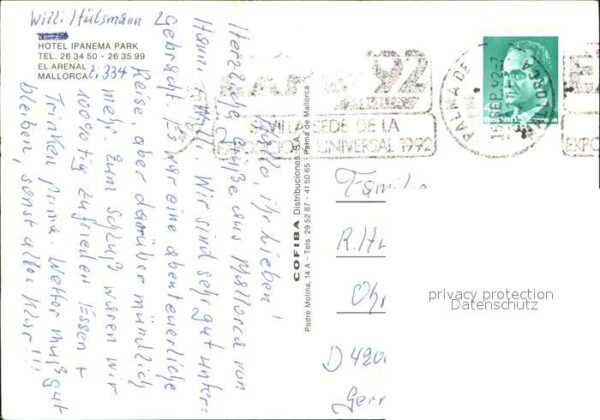 Willi Hülsmann
HOTEL IPANEMA PARK
TEL. 26 34 50 - 26 35 99
EL ARENAL
MALLORCA
Z. 334
Hallo, ihr Lieben!
Herzliche Grüße aus Mallorca von
Hanni + Willi. Wir sind sehr gut unter-
gebracht. Es war eine abenteuerliche
Reise aber darüber mündlich
mehr. Zum Schluß waren wir
100%tig zufrieden. Essen +
Trinken prima. Wetter muß gut
bleiben, sonst alles klar!!!
COFIBA Distribuciones S.A.
Padre Molina, 14 A - Tels. 29 52 87 - 41 50 65 - Palma de Mallorca
92
SEVILLA SEDE DE LA
EXPOSICION UNIVERSAL 1992
PALMA DE MALLORCA
EXPO
Famili
R.
D 420
privacy protection
Datenschutz